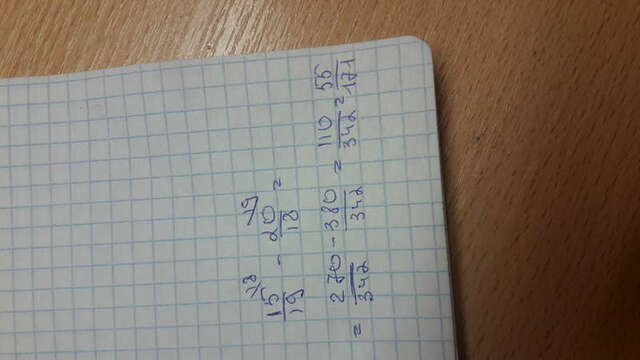 15\18/19 - 20\19/18 =
= 270/342 - 380/342 = 110/342 = 55/171